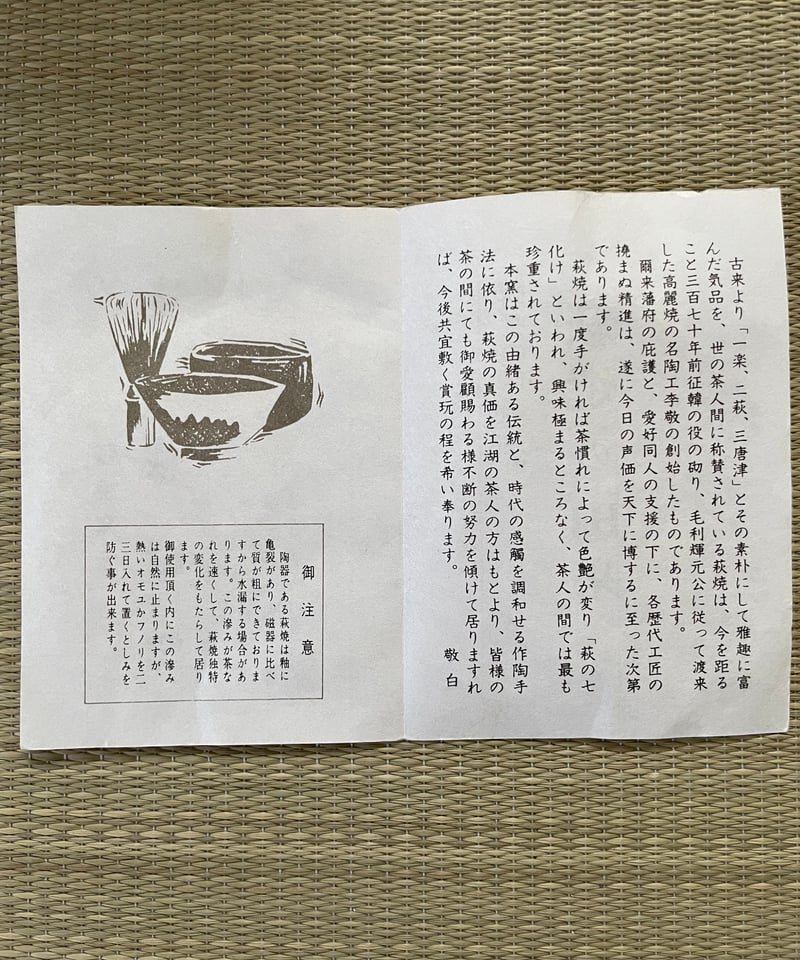 古来より「一楽、二萩、三唐津」とその素朴にして雅趣に富
んだ気品を、世の茶人間に称賛されている萩焼は、今を距る
こと三百七十年前征韓の役の砌り、毛利輝元公に従って渡来
した高麗焼の名陶工李敬の創始したものであります。
爾来藩府の庇護と、愛好同人の支援の下に、各歴代工匠の
撓まぬ精進は、遂に今日の声価を天下に博するに至った次第
であります。
萩焼は一度手がければ茶慣れによって色艶が変り「萩の七
化け」といわれ、興味極まるところなく、茶人の間では最も
珍重されております。
本窯はこの由緒ある伝統と、時代の感觸を調和せる作陶手
法に依り、萩焼の真価を江湖の茶人の方はもとより、皆様の
茶の間にても御愛顧賜わる様不断の努力を傾けて居りますれ
ば、今後共宜敷く賞玩の程を希い奉ります。
敬白
御注意
陶器である萩焼は釉に
亀裂があり、磁器に比べ
て質が粗にできておりま
すから水漏する場合があ
ります。この滲みが茶な
れを速くして、萩焼独特
の変化をもたらして居り
ます。
御使用頂く内にこの滲み
は自然に止まりますが、
熱いオモユかフノリを二
三日入れて置くとしみを
防ぐ事が出来ます。